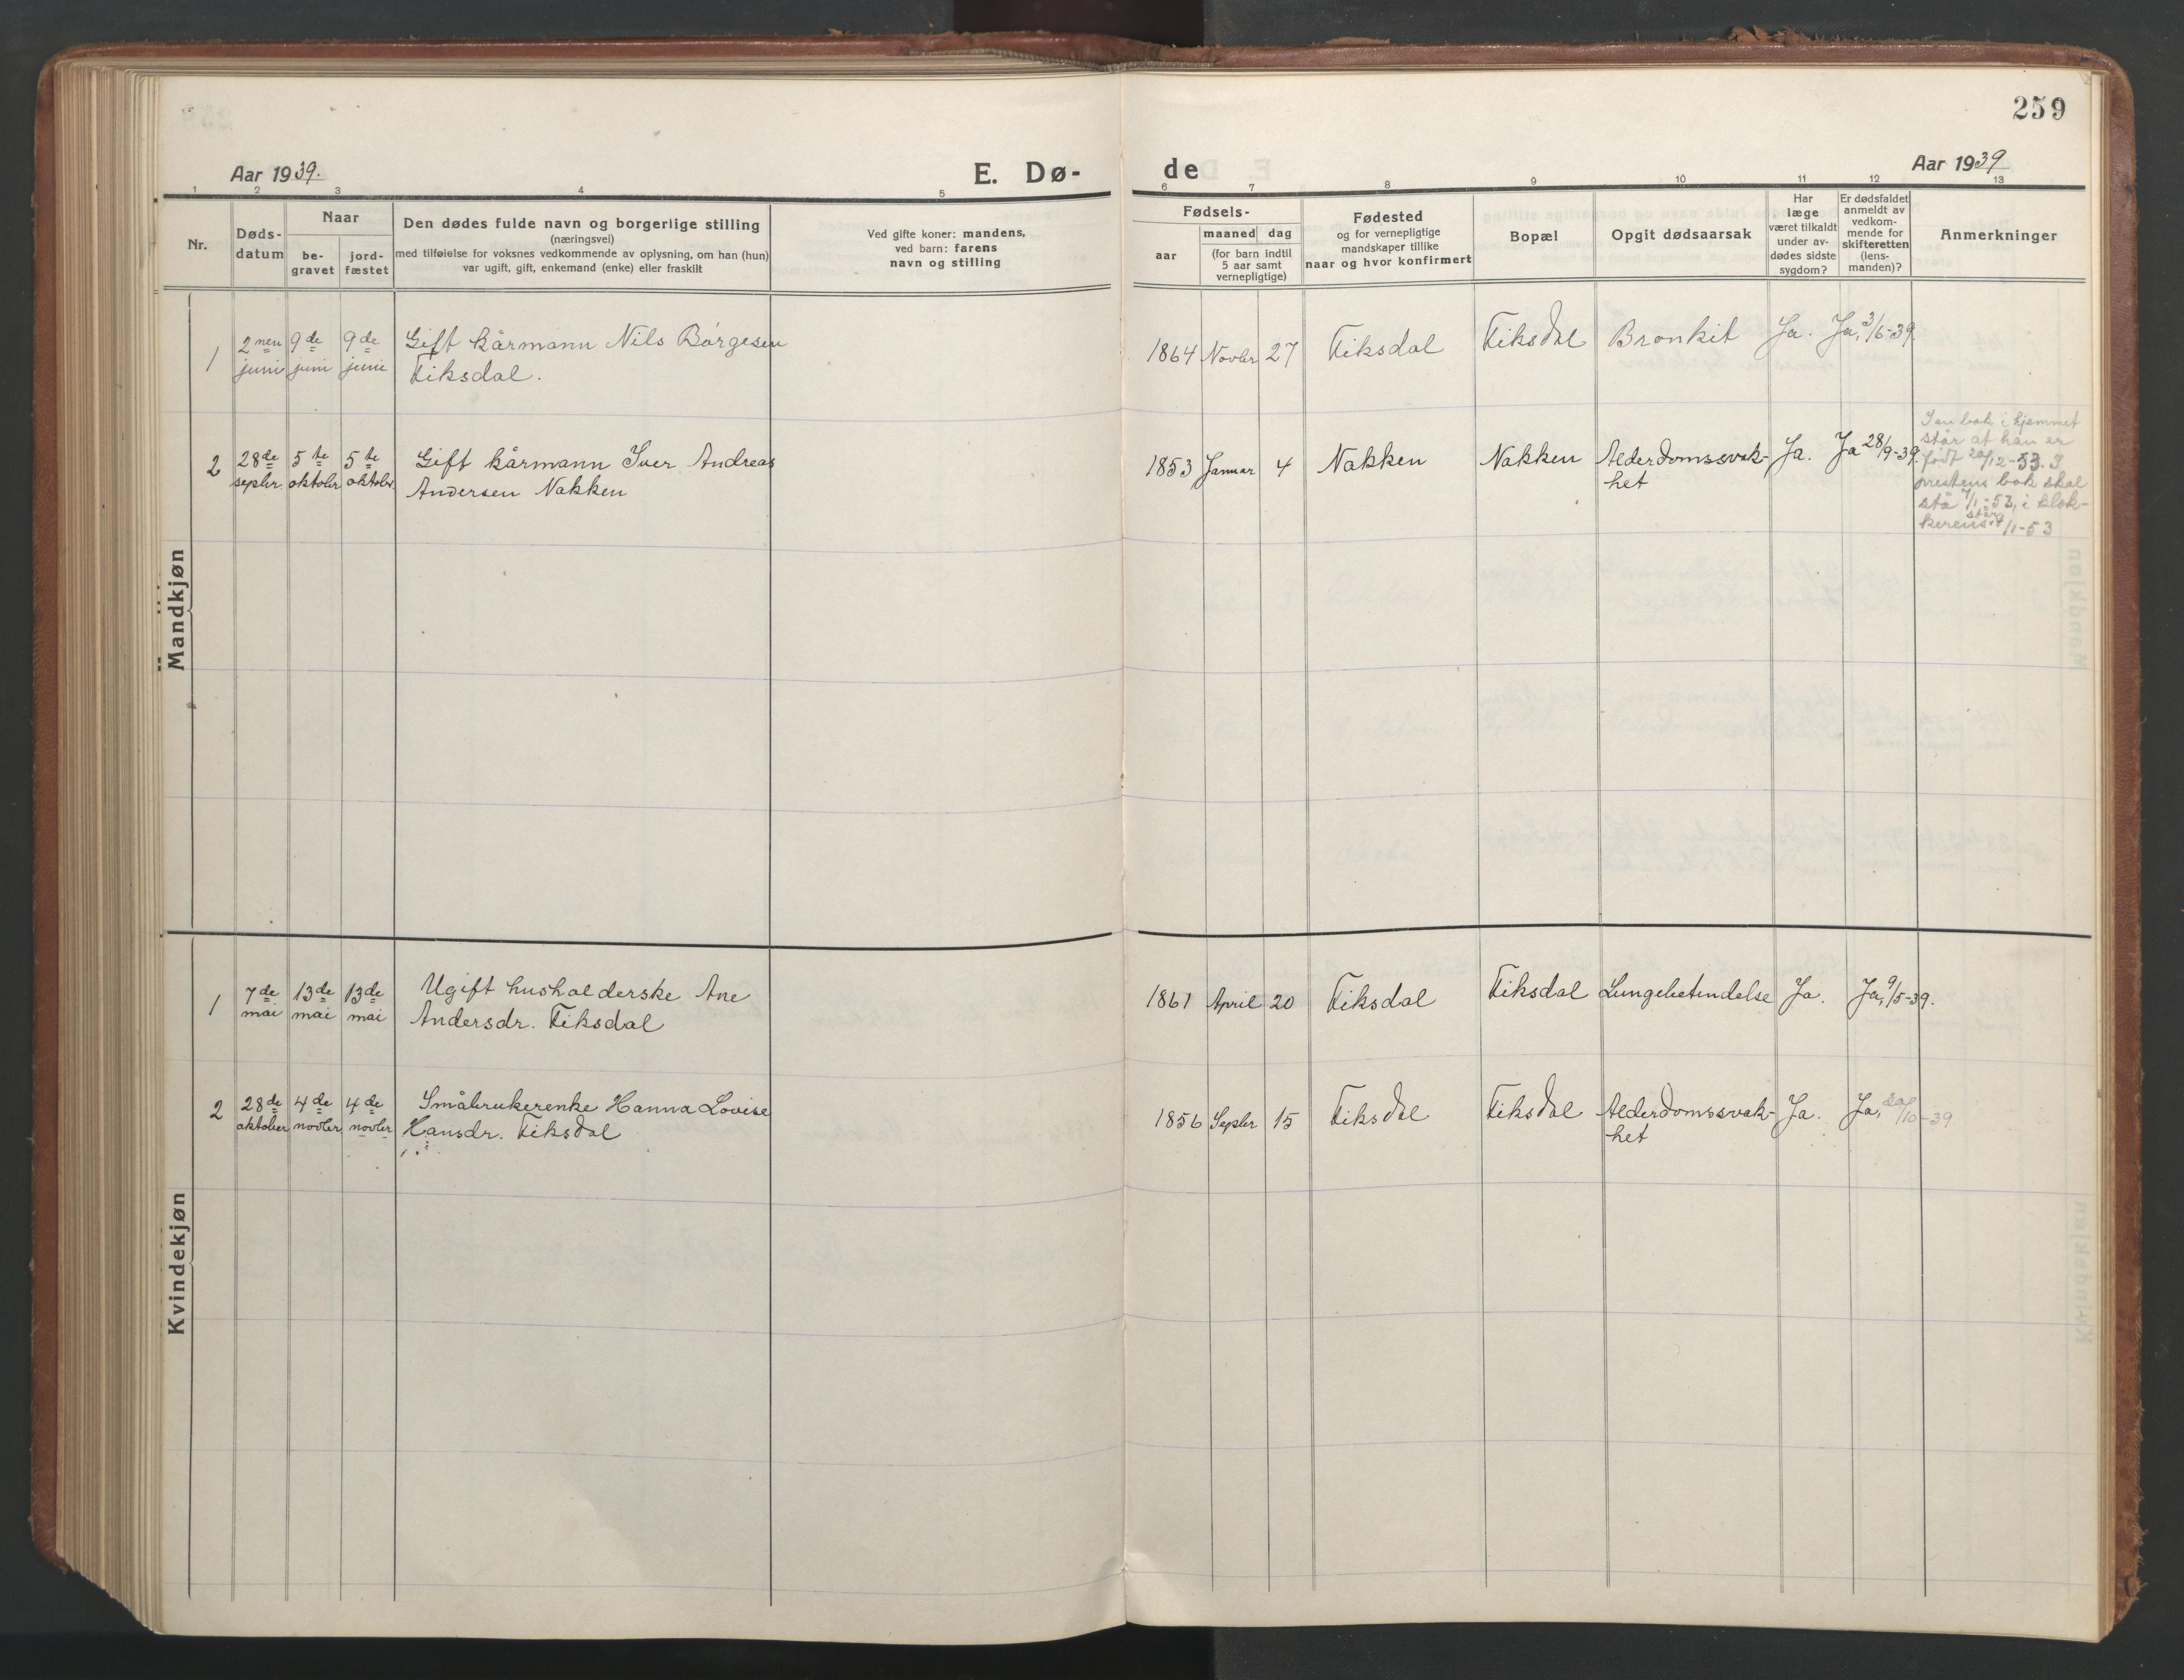 259
Aar 1939.
E. Dø-
de
Aar 1939
1 2 3 4 5 6 7 8 9 10 11 12 13
Nr.
Døds-
datum
Naar
be-
gravet
jord-
fæstet
Den dødes fulde navn og borgerlige stilling
(næringsvei)
med tilføielse for voksnes vedkommende av oplysning, om han (hun)
var ugift, gift, enkemand (enke) eller fraskilt
Ved gifte koner: mandens,
ved barn: farens
navn og stilling
Fødsels-
aar
maaned dag
(for barn indtil
5 aar samt
vernepligtige)
Fødested
og for vernepligtige
mandskaper tillike
naar og hvor konfirmert
Bopæl
Opgit dødsaarsak
Har
læge
været tilkaldt
under av-
dødes sidste
sygdom?
Er dødsfaldet
anmeldt av
vedkom-
mende for
skifteretten
(lens-
manden)?
Anmerkninger
Mandkjøn
1
2nen
juni
9de
juni
9de
juni
Gift kårmann Nils Børgesen
Fiksdal.
1864 Novbr 27 Fiksdal Fiksdal Bronkit Ja. Ja, 3/6-39.
2
28de
septbr.
5te
oktober
5te
oktober.
Gift kårmann Iver Andreas
Andersen Nakken
1853 Januar 4 Nakken Nakken Alderdomssvak-
het
Ja. Ja 28/9-39.
I en bok i hjemmet
står at han er
født 20/12-53. I
prestens bok skal
stå 7/1-53, i klok-
kerens står 4/1-53
Kvindekjøn
1
7de
mai
13de
mai
13de
mai
Ugift husholderske Ane
Andersdr. Fiksdal
1861 April 20 Fiksdal Fiksdal Lungebetendelse Ja. Ja, 9/5-39.
2
28de
oktober
4de
novbr
4de
novbr
Småbrukerenke Hanna Lovise
Hansdr. Fiksdal
1856 Septbr 15 Fiksdal Fiksdal Alderdomssvak-
het
Ja. Ja, 30/10-39